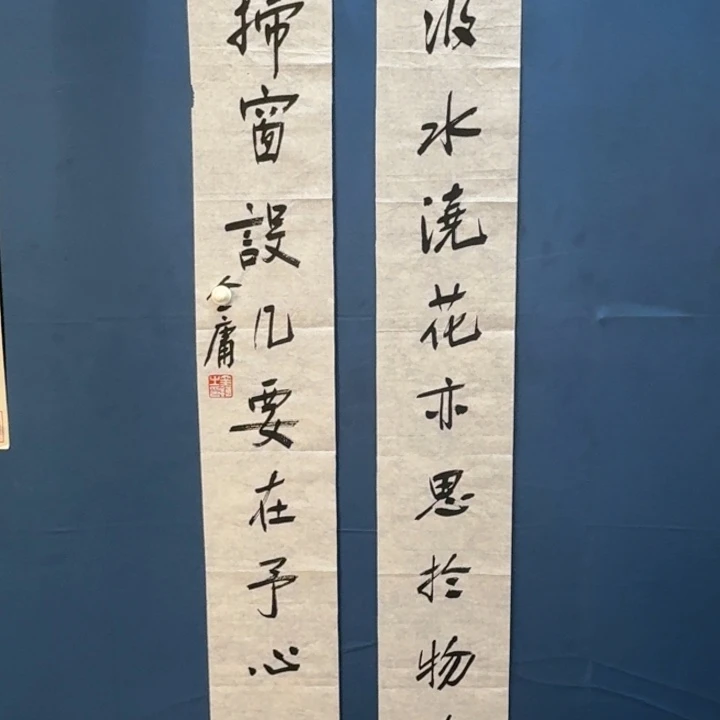 汲水澆花亦思於物
掃窗設几要在予心
金庸